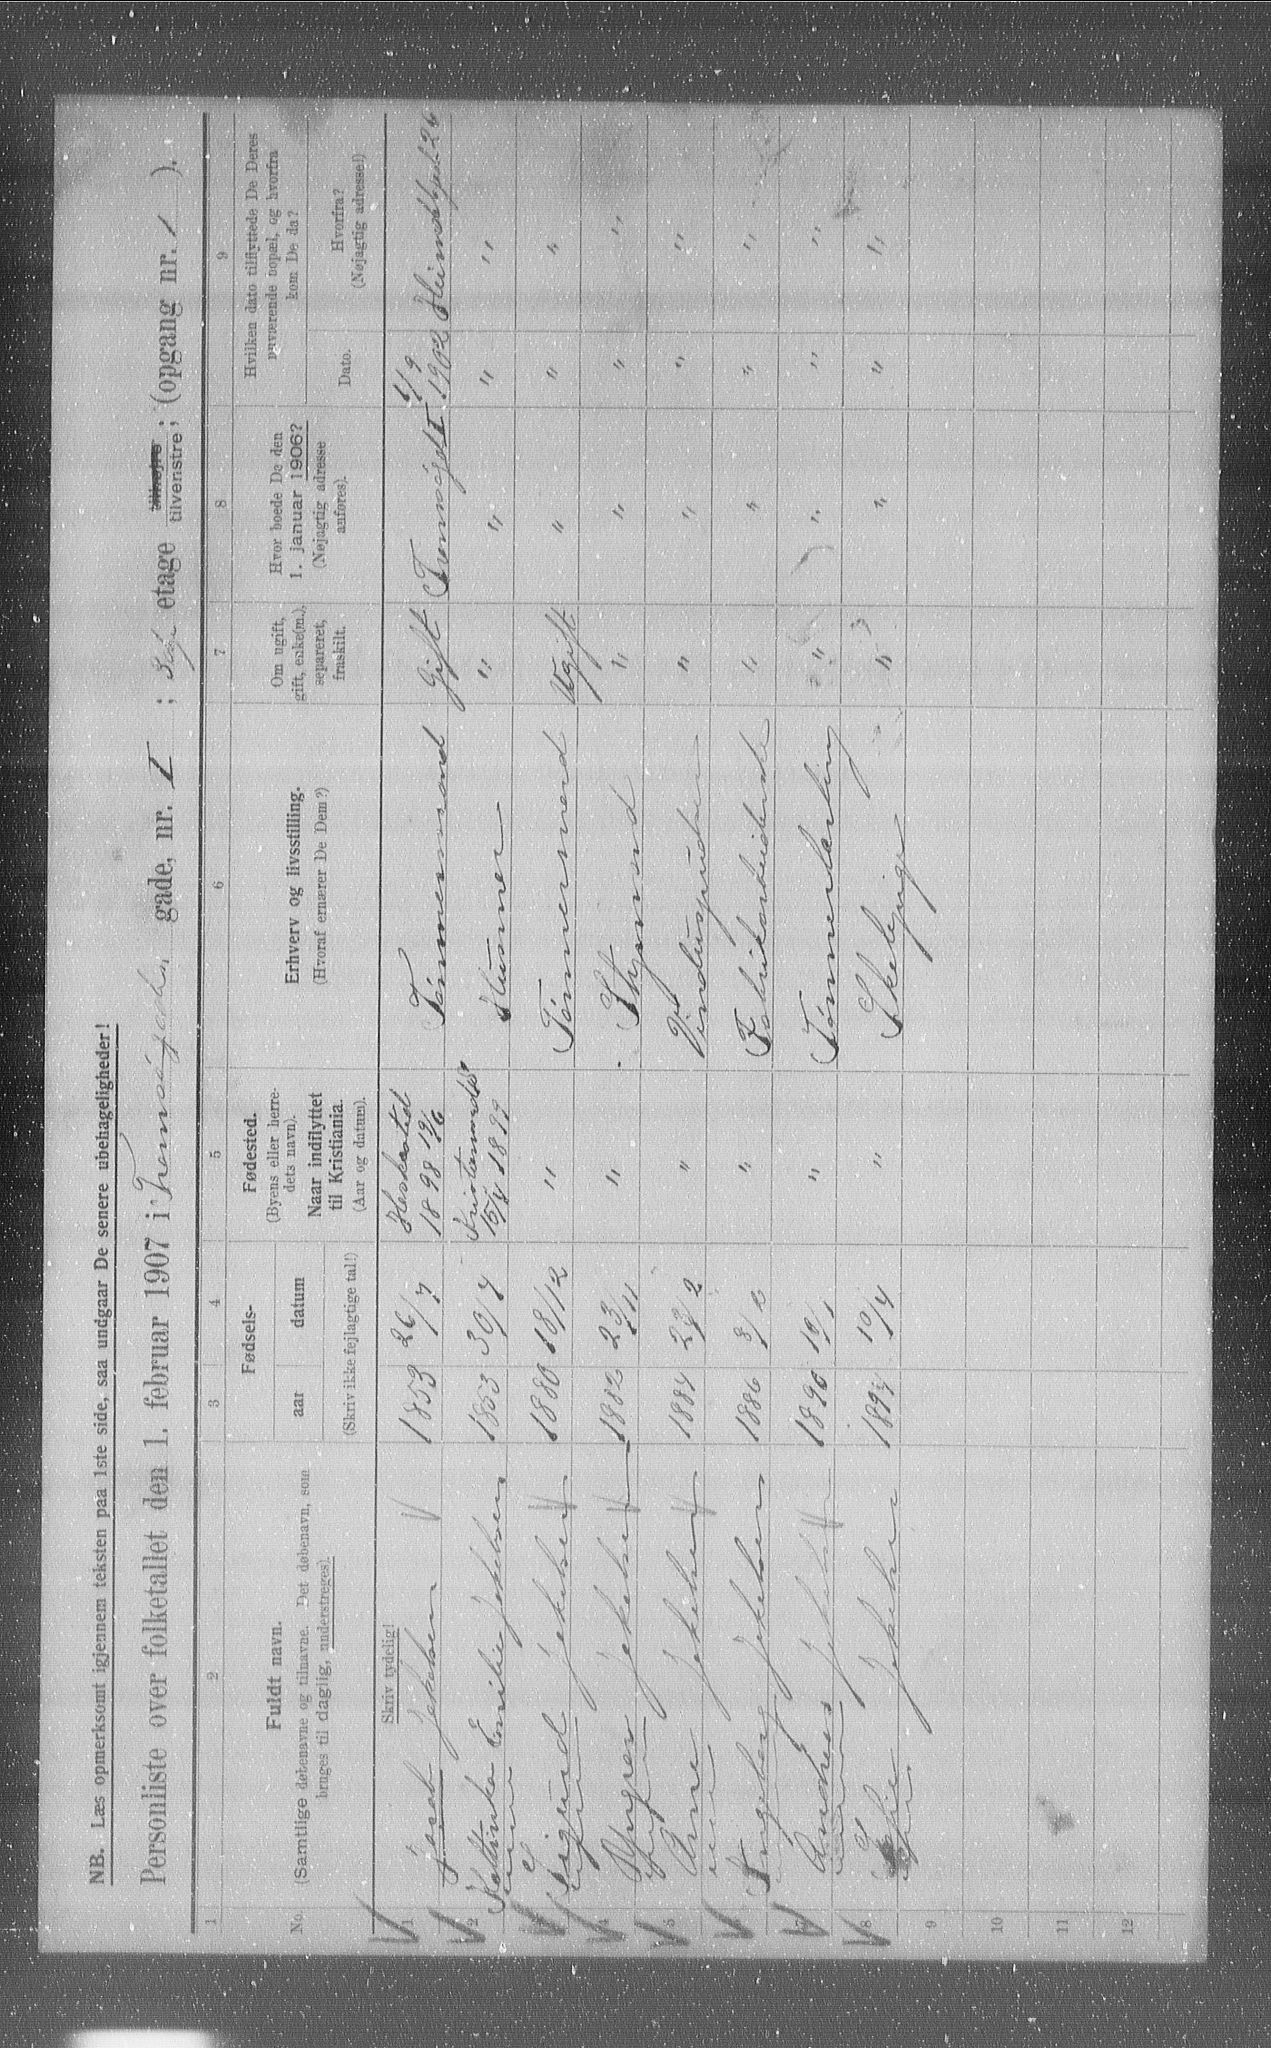 NB. Læs opmerksomt igjennem teksten paa 1ste side, saa undgaar De senere ubehageligheder!
Personliste over folketallet den 1. februar 1907 i Tromsøgaden gade, nr. I ; etage tilhøire tilvenstre; (opgang nr. 1 ).
1 2 3 4 5 6 7 8 9
No. Fuldt navn. (Samtlige døbenavne og tilnavne. Det døbenavn, som bruges til daglig, understreges).
Fødsels- aar datum
(Skriv ikke fejlagtige tal!)
Fødested. (Byens eller herredets navn). Naar indflyttet til Kristiania. (Aar og datum).
Erhverv og livsstilling. (Hvoraf ernærer De Dem?)
Om ugift, gift, enke(m.), separeret, fraskilt.
Hvor boede De den 1. januar 1906? (Nøjagtig adresse anføres).
Hvilken dato tilflyttede De Deres nuværende bopæl, og hvorfra kom De da?
Dato. Hvorfra? (Nøjagtig adresse!)
Skriv tydelig!
1 Jacob Jakobsen 1853 26/7 1898 19/6 Tømmermand Gift Tromsøgd I 1/9 1902 26
2 Kattinka Emilie Jakobsen 1853 30/7 15/4 1899 Husmor " " " "
3 Sigurd Jakobsen 1880 18/12 " Tømmermand Ugift " " "
4 Yngvar Jakobsen 1882 23/11 " Styrmand " " " "
5 Arne Jakobsen 1884 23/2 " Vinduspudser " " " "
6 Ingeborg Jakobsen 1886 8/2 " Fabrikarbeiderske " " " "
7 Andreas Jakobsen 1890 19/1 " Tømmerlærling " " " "
8 Jakobsen 1894 10/4 " Skolepige " " " "
9
10
11
12